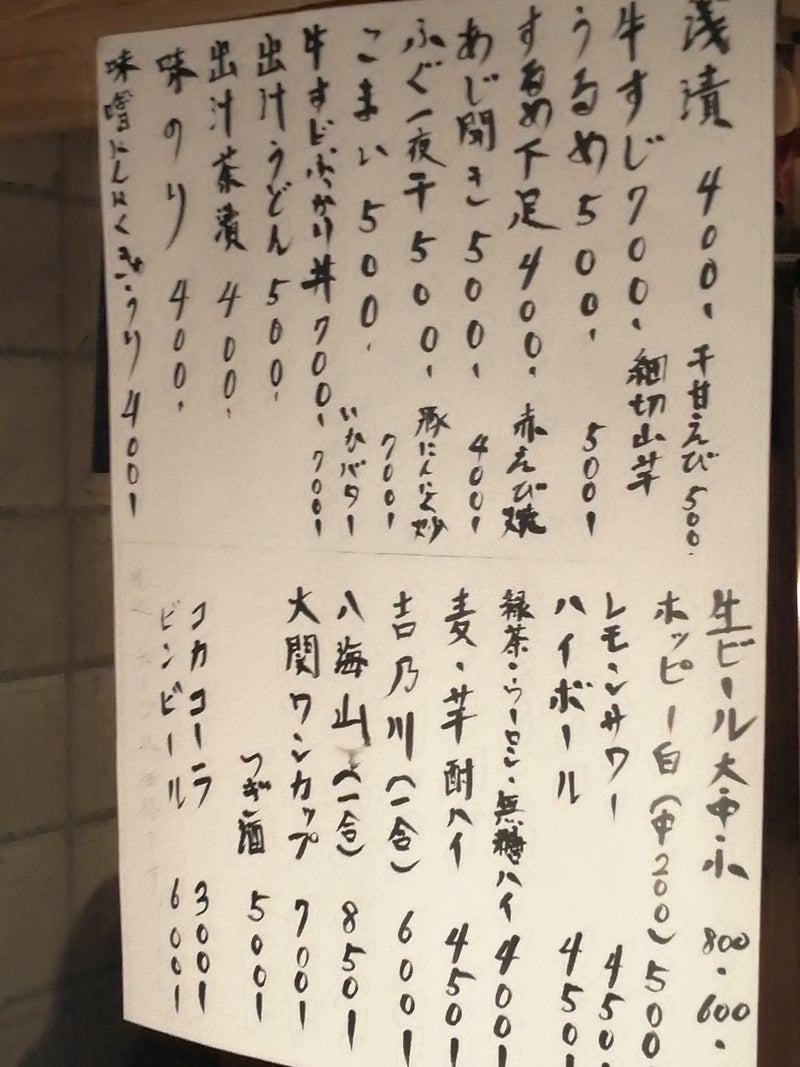 浅漬 400.
干甘えび 500.
牛すじ 700.
細切山芋 500-
うるめ 500.
するめ下足 400.
赤えび焼 400-
あじ開き 500.
ふぐ一夜干 500.
豚にんにく炒 700-
こまい 500.
いかバター 700-
牛すじぶっかけ丼 700.
出汁うどん 500.
出汁茶漬 400.
味のり 400.
味噌にんにくきゅうり 400-
生ビール大中小 800.600.
ホッピー白(中200) 500
レモンサワー 450
ハイボール 450-
緑茶・ウーロン・無糖ハイ 400-
麦・芋酎ハイ 450-
吉乃川(一合) 600-
八海山(一合) 850-
大関ワンカップ 700-
つぎ酒 500-
コカコーラ 300-
ビンビール 600-